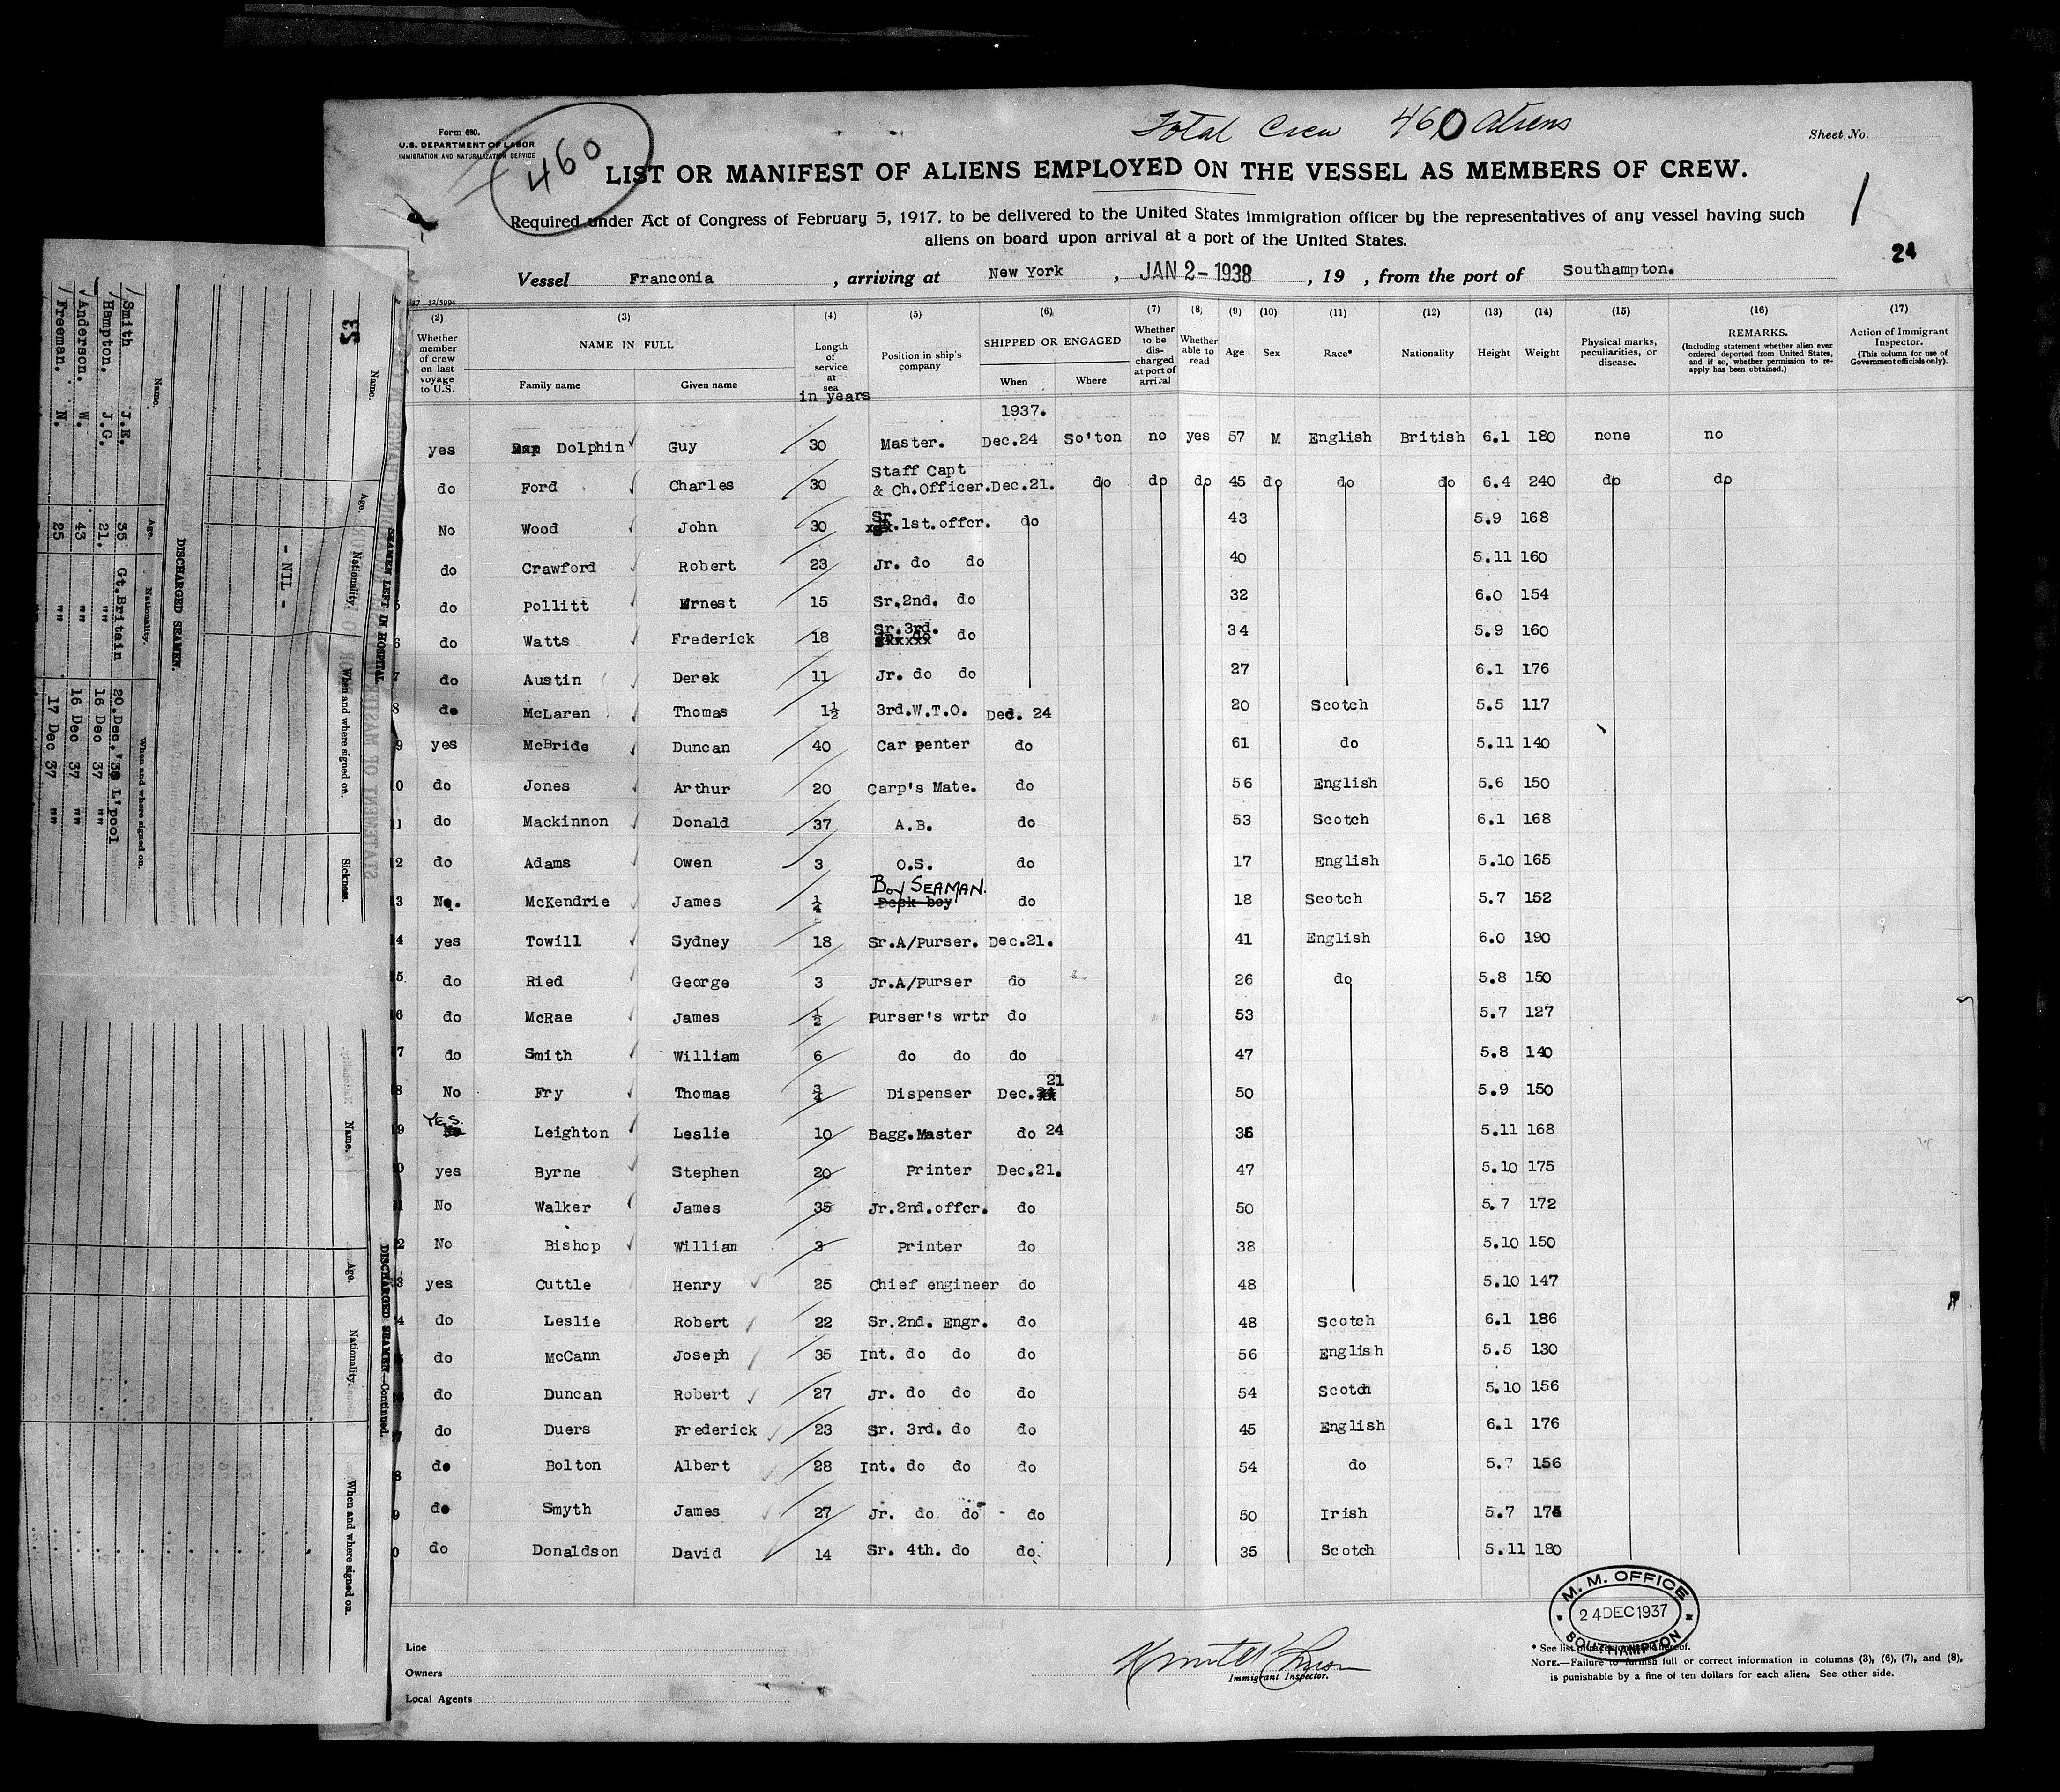 Total Crew 460 Aliens
Form 680.
U.S. DEPARTMENT OF LABOR
IMMIGRATION AND NATURALIZATION SERVICE
460
Sheet No.
LIST OR MANIFEST OF ALIENS EMPLOYED ON THE VESSEL AS MEMBERS OF CREW.
Required under Act of Congress of February 5, 1917, to be delivered to the United States immigration officer by the representatives of any vessel having such
aliens on board upon arrival at a port of the United States.
1
24
Vessel Franconia, arriving at New York, JAN 2-1938, 19 , from the port of Southampton.
(2) (3) (4) (5) (6) (7) (8) (9) (10) (11) (12) (13) (14) (15) (16) (17)
Whether member of crew on last voyage to U.S.
NAME IN FULL
Family name Given name
Length of service at sea in years
Position in ship's company
SHIPPED OR ENGAGED
When Where
Whether to be discharged at port of arrival
Whether able to read
Age
Sex
Race*
Nationality
Height
Weight
Physical marks, peculiarities, or disease.
REMARKS.
(Including statement whether alien ever ordered deported from United States, and if so, whether permission to reapply has been obtained.)
Action of Immigrant Inspector.
(This column for use of Government officials only).
1937.
yes Dolphin Guy 30 Master. Dec.24 So'ton no yes 57 M English British 6.1 180 none no
do Ford Charles 30 Staff Capt & Ch.Officer. Dec.21. do do do 45 do do do 6.4 240 do do
No Wood John 30 Sr.1st.offcr. do 43 5.9 168
do Crawford Robert 23 Jr. do do 40 5.11 160
5 do Pollitt Ernest 15 Sr.2nd. do 32 6.0 154
6 do Watts Frederick 18 Sr.3rd. do 34 5.9 160
7 do Austin Derek 11 Jr. do do 27 6.1 176
8 do McLaren Thomas 1½ 3rd.W.T.O. Dec. 24 20 Scotch 5.5 117
9 yes McBride Duncan 40 Car penter do 61 do 5.11 140
0 do Jones Arthur 20 Carp's Mate. do 56 English 5.6 150
1 do Mackinnon Donald 37 A.B. do 53 Scotch 6.1 168
2 do Adams Owen 3 O.S. do 17 English 5.10 165
3 No. McKendrie James ¼ BOY SEAMAN. Deck boy do 18 Scotch 5.7 152
4 yes Towill Sydney 18 Sr.A/Purser. Dec.21. 41 English 6.0 190
5 do Ried George 3 Jr.A/Purser do 26 do 5.8 150
6 do McRae James ½ Purser's wrtr do 53 5.7 127
7 do Smith William 6 do do do 47 5.8 140
8 No Fry Thomas ¾ Dispenser Dec. 21 50 5.9 150
9 YES. Leighton Leslie 10 Bagg.Master do 24 36 5.11 168
0 yes Byrne Stephen 20 Printer Dec.21. 47 5.10 175
1 No Walker James 35 Jr.2nd.offcr. do 50 5.7 172
2 No Bishop William 3 Printer do 38 5.10 150
3 yes Cuttle Henry 25 Chief engineer do 48 5.10 147
4 do Leslie Robert 22 Sr.2nd. Engr. do 48 Scotch 6.1 186
5 do McCann Joseph 35 Int. do do do 56 English 5.5 130
6 do Duncan Robert 27 Jr. do do do 54 Scotch 5.10 156
7 do Duers Frederick 23 Sr. 3rd. do do 45 English 6.1 176
8 do Bolton Albert 28 Int. do do do 54 do 5.7 156
9 do Smyth James 27 Jr. do do - do 50 Irish 5.7 175
0 do Donaldson David 14 Sr. 4th. do do. 35 Scotch 5.11 180
Line
Owners
Local Agents
Immigrant Inspector.
M. M. OFFICE
24 DEC 1937
SOUTHAMPTON
* See list of races on back hereof.
NOTE.—Failure to furnish full or correct information in columns (3), (6), (7), and (8),
is punishable by a fine of ten dollars for each alien. See other side.
STATEMENT OF MASTER
SEAMEN LEFT IN HOSPITAL
53
Name. Age. Nationality. When and where signed on. Sickness.
- NIL -
DISCHARGED SEAMEN.
Name. Age. Nationality. When and where signed on.
Smith J.E. 35 Gt.Britain 20.Dec.'36 L'pool
Hampton. J.G. 21. "" 16 Dec 37 ""
Anderson. W. 43 "" 16 Dec 37 ""
Freeman. N. 25 "" 17 Dec 37 ""
DISCHARGED SEAMEN—Continued.
Name. Age. Nationality. When and where signed on.